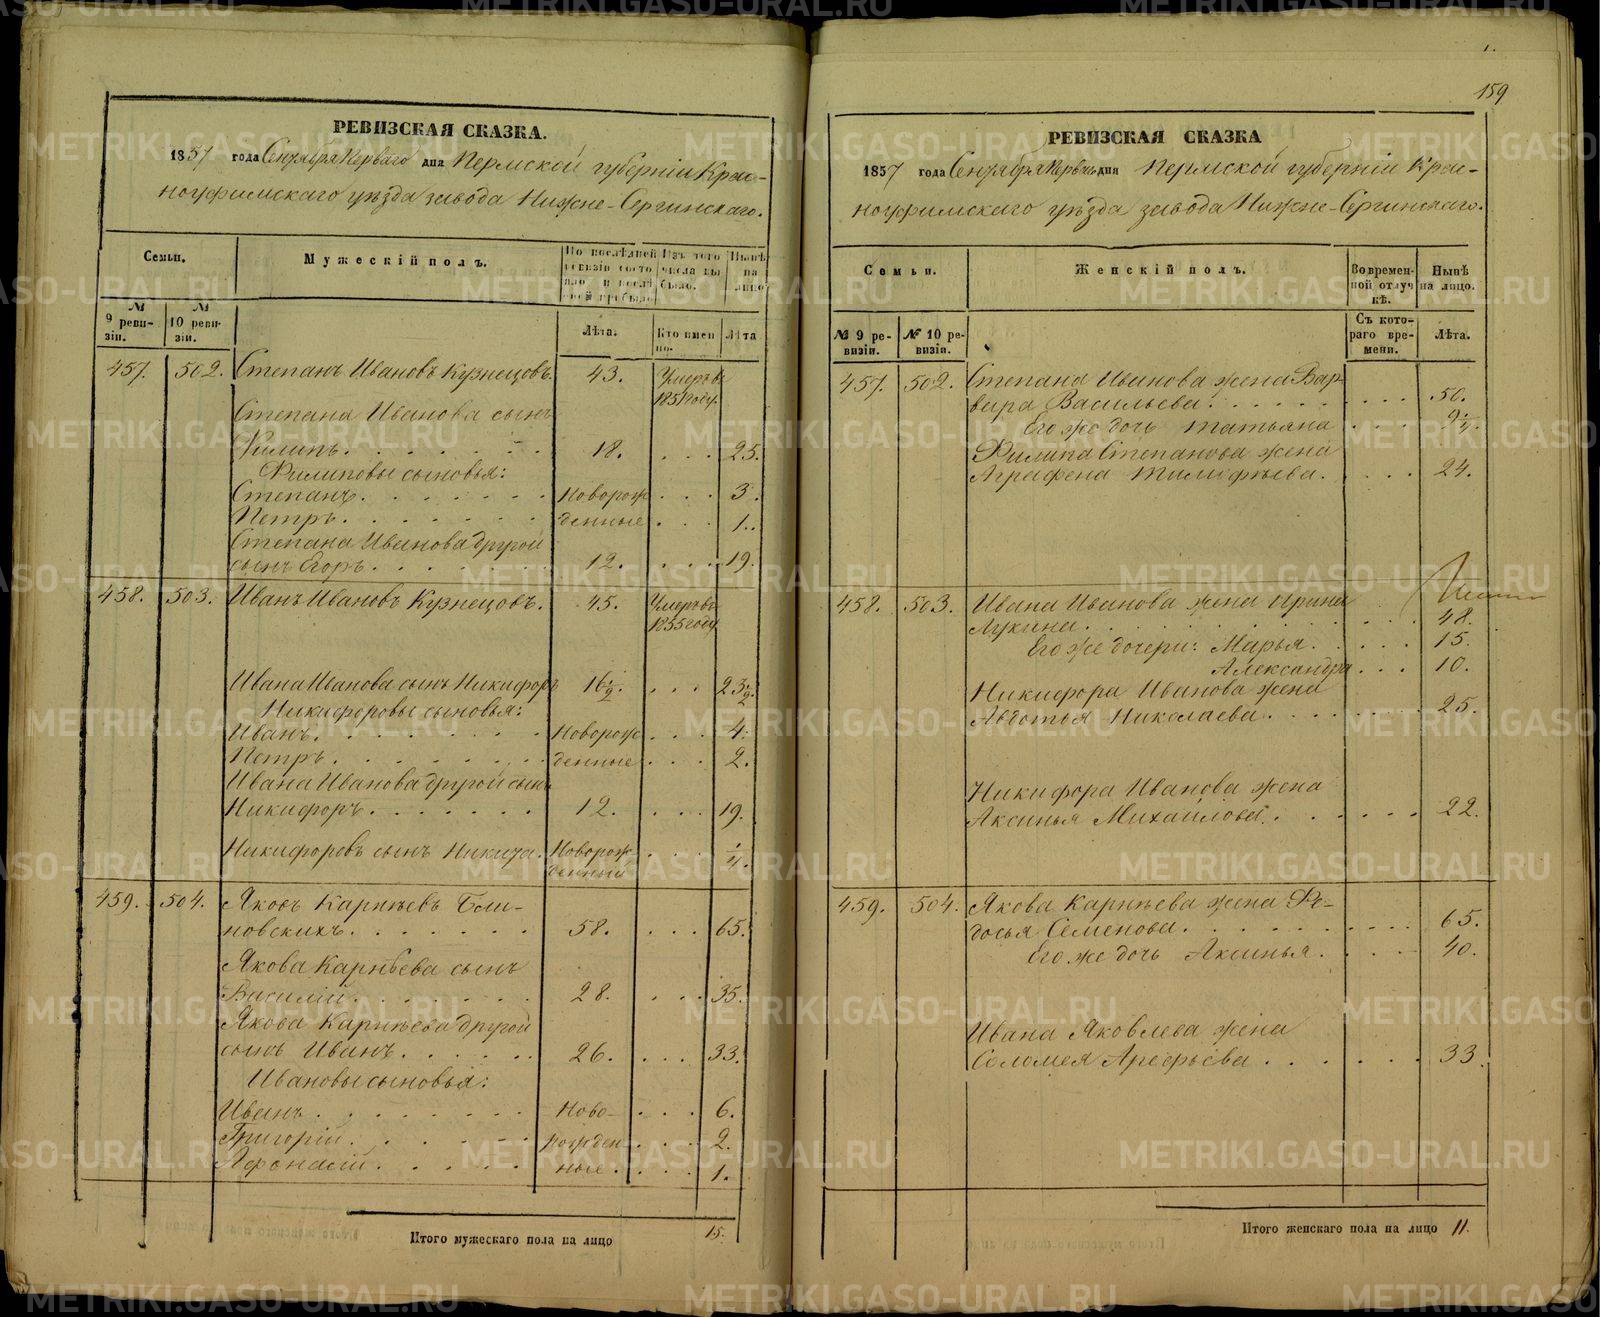 РЕВИЗСКАЯ СКАЗКА.
1857 года Сентября Перваго дня Пермской губерніи Крас-
ноуфимскаго уѣзда завода Нижне-Сергинскаго.
Семьи. Мужескій полъ. По послѣдней ревизіи состояло и послѣ оной прибыло Изъ того числа выбыло. Нынѣ на лицо
№ 9 ревизіи. № 10 ревизіи. Лѣта. Кто именно. Лѣта
457. 502. Степанъ Ивановъ Кузнецовъ. 43. Умеръ въ
185 году.
Степана Иванова сынъ
Филипъ. 18. 25.
Филиповы сыновья:
Степанъ. Новорож 3.
Петръ. денные 1.
Степана Иванова другой
сынъ Егоръ. 12. 19.
458. 503. Иванъ Ивановъ Кузнецовъ. 45. Умеръ въ
1855 году
Ивана Иванова сынъ Никифоръ 16 1/2. 23 1/2
Никифоровы сыновья:
Иванъ. Новорож 4.
Петръ. денные 2.
Ивана Иванова другой сынъ
Никифоръ. 12. 19.
Никифоровъ сынъ Никита. Новорож 1/4.
денный
459. 504. Яковъ Карнѣевъ Бли-
новскихъ. 58. 65.
Якова Карнѣева сынъ
Василій. 28. 35.
Якова Карнѣева другой
сынъ Иванъ. 26. 33.
Ивановы сыновья:
Иванъ. Ново- 6.
Григорій. рожден- 2.
Афонасій. ные. 1.
Итого мужескаго пола на лицо 15.
159
РЕВИЗСКАЯ СКАЗКА
1857 года Сентября Перв дня Пермской губерніи Крас-
ноуфимскаго уѣзда завода Нижне-Сергинскаго.
Семьи. Женскій полъ. Во временной отлучкѣ. Нынѣ на лицо.
№ 9 ревизіи. № 10 ревизіи. Съ котораго времени. Лѣта.
457. 502. Степана Иванова жена Вар-
вара Васильева. 50.
Его же дочь Татьяна 9 1/4.
Филипа Степанова жена
Аграфена Тимофѣева. 24.
458. 503. Ивана Иванова жена Ирина
Лукина. 48.
Его же дочери: Марья. 15.
Александра 10.
Никифора Иванова жена
Авдотья Николаева. 25.
Никифора Иванова жена
Аксинья Михайлова. 22.
459. 504. Якова Карнѣева жена Фе-
досья Семенова. 65.
Его же дочь Аксинья. 40.
Ивана Яковлева жена
Соломея Арефьева. 33.
Итого женскаго пола на лицо 11.
METRIKI.GASO-URAL.RU